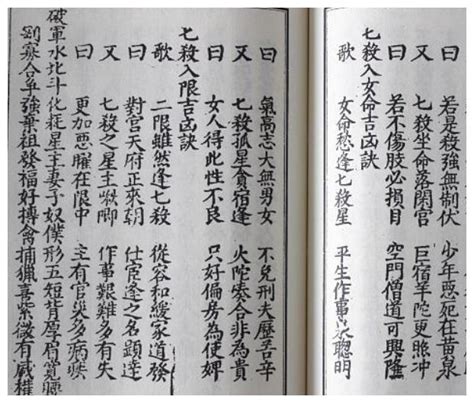 若是殺強無制伏 少年惡死在黃泉
又 七殺坐命落閑宮 巨宿羊陀更照冲
曰 若不傷肢必損目 空門僧道可興隆
七殺入女命吉凶訣
歌 女命愁逢七殺星 平生作事聰明
曰 氣高志大無男女 不免刑夫歷苦辛
又 七殺孤星貪宿逢 火陀湊合非為貴
曰 女人得此性不良 只好偏房為使婢
七殺入限吉凶訣
歌 二限雖然逢七殺 從容和緩家道發
曰 對宮天府正來朝 仕宦逢之名顯達
又 七殺之星主啾唧 作事艱難多有失
曰 更加惡曜在限中 主有官災多病疾
破軍水北斗化耗星主妻子奴僕形五短背厚眉寬腰
剛寡合爭強棄祖發福好搏禽捕獵喜紫微有威權